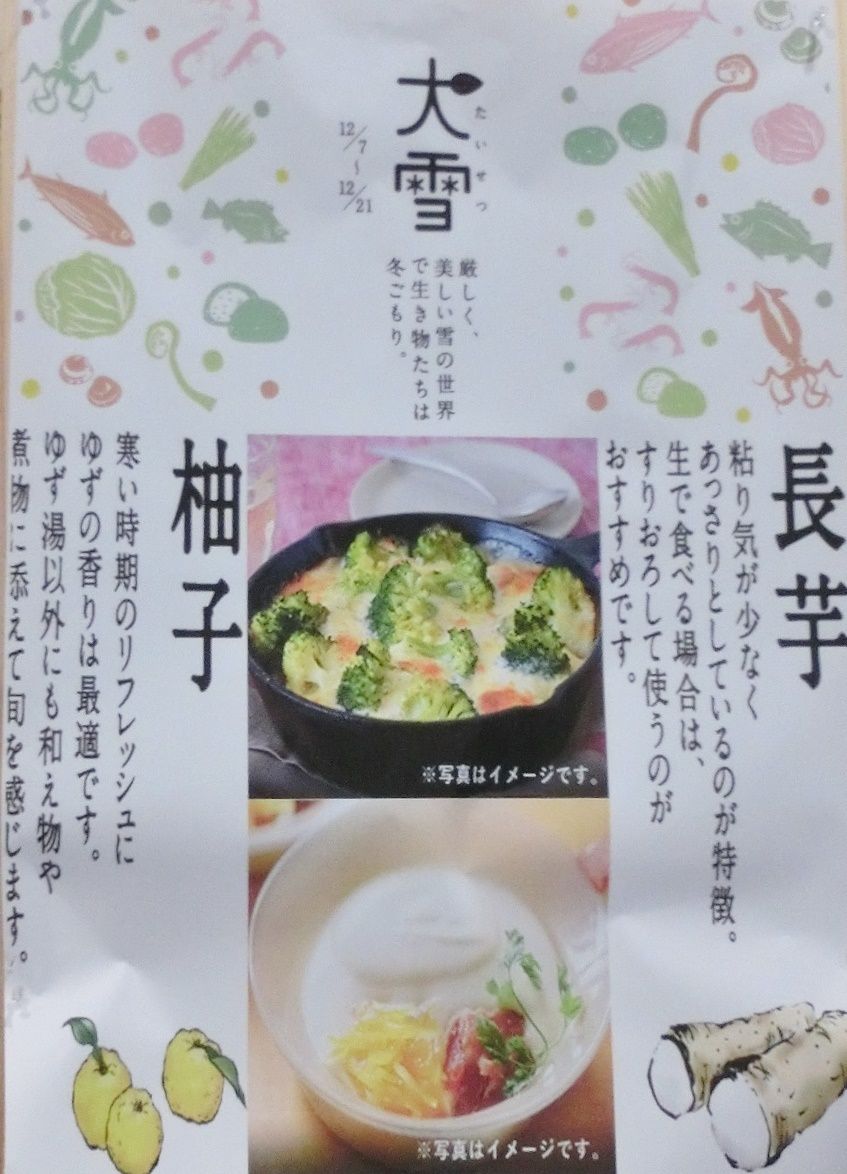 大雪
たいせつ
12/7～12/21
厳しく、
美しい雪の世界
で生き物たちは
冬ごもり。
長芋
粘り気が少なく
あっさりとしているのが特徴。
生で食べる場合は、
すりおろして使うのが
おすすめです。
※写真はイメージです。
※写真はイメージです。
柚子
寒い時期のリフレッシュに
ゆずの香りは最適です。
ゆず湯以外にも和え物や
煮物に添えて旬を感じます。